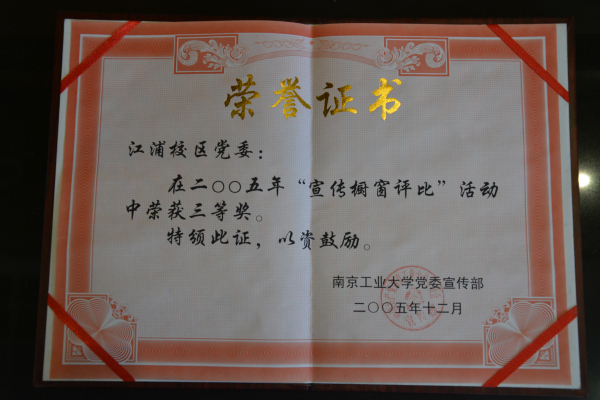 荣誉证书
江浦校区党委：
在二〇〇五年“宣传橱窗评比”活动
中荣获三等奖。
特颁此证，以资鼓励。
南京工业大学党委宣传部
二〇〇五年十二月